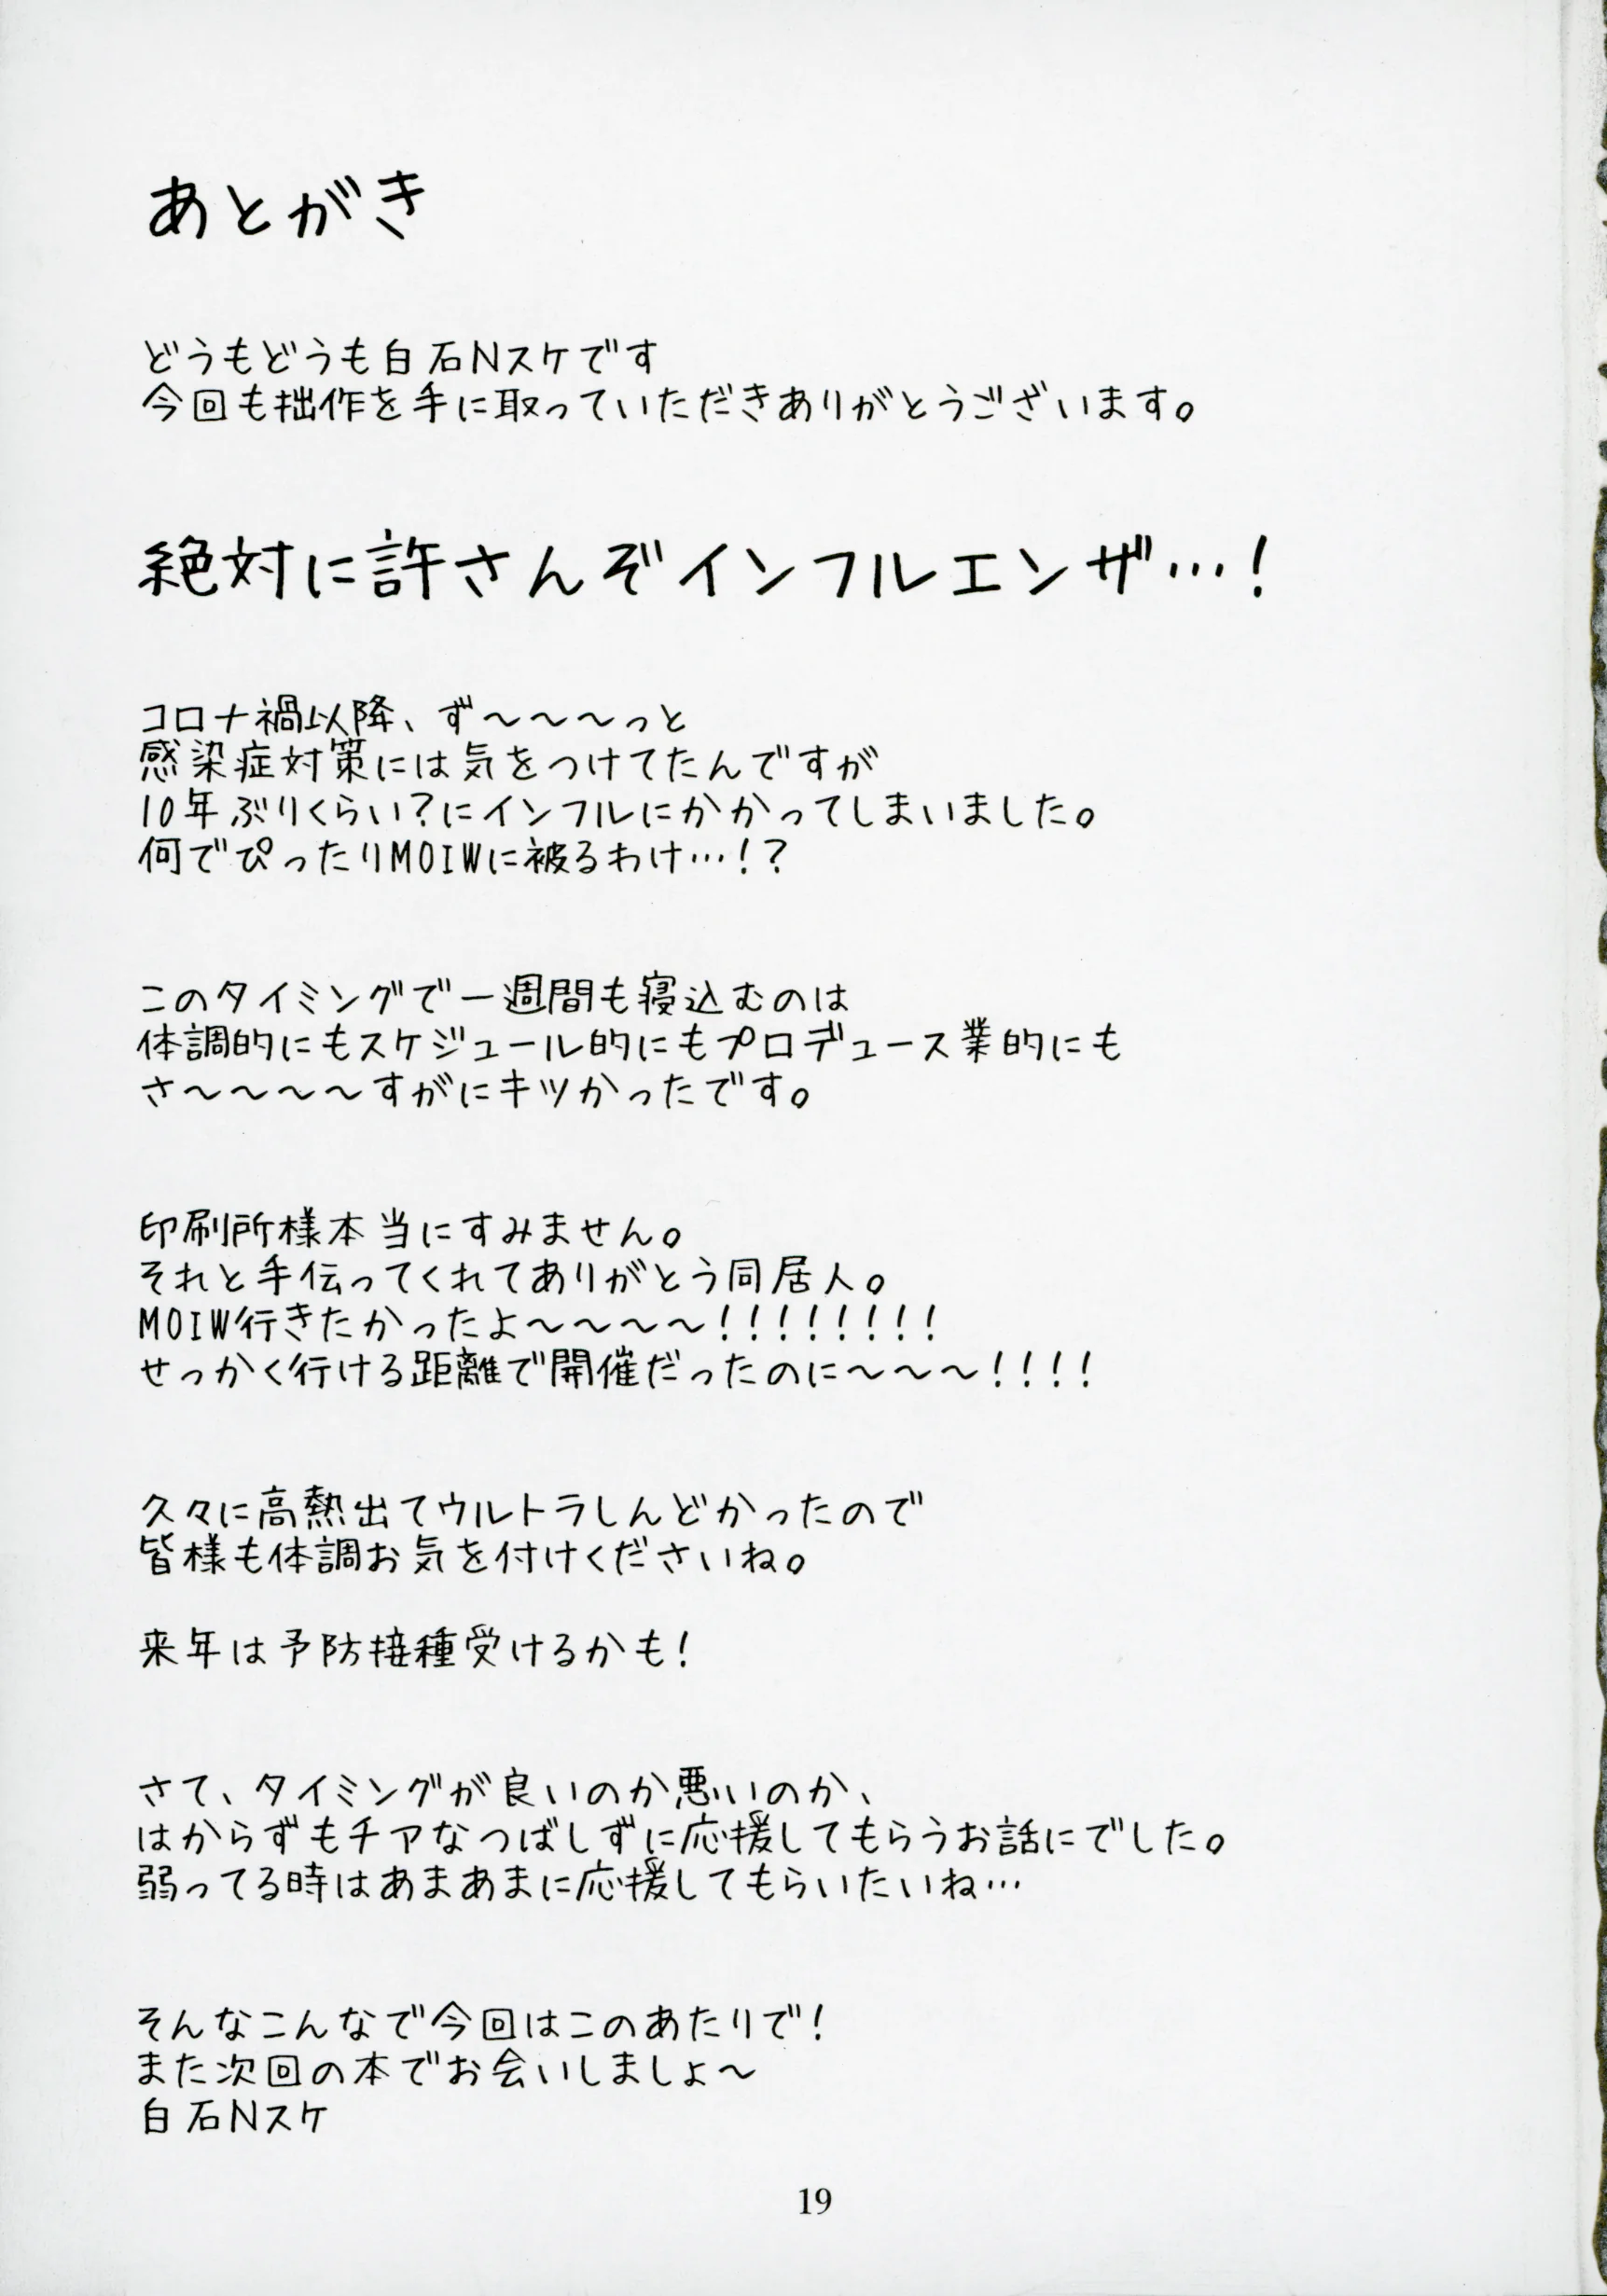 あとがき
どうもどうも白石Nスケです
今回も拙作を手に取っていただきありがとうございます。
絶対に許さんぞインフルエンザ…！
コロナ禍以降、ず～～～っと
感染症対策には気をつけてたんですが
10年ぶりくらい？にインフルにかかってしまいました。
何でぴったりMOIWに被るわけ…！？
このタイミングで一週間も寝込むのは
体調的にもスケジュール的にもプロデュース業的にも
さ～～～～すがにキツかったです。
印刷所様本当にすみません。
それと手伝ってくれてありがとう同居人。
MOIW行きたかったよ～～～～！！！！！！！！
せっかく行ける距離で開催だったのに～～～！！！！
久々に高熱出てウルトラしんどかったので
皆様も体調お気を付けくださいね。
来年は予防接種受けるかも！
さて、タイミングが良いのか悪いのか、
はからずもチアなつばしずに応援してもらうお話にでした。
弱ってる時はあまあまに応援してもらいたいね…
そんなこんなで今回はこのあたりで！
また次回の本でお会いしましょ～
白石Nスケ
19